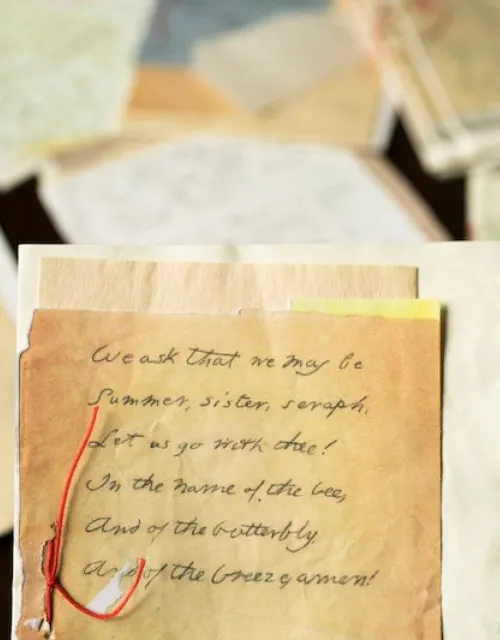 We ask that we may be
Summer, sister, seraph,
Let us go with thee!
In the name of the bee,
And of the butterbly,
And of the breeze, amen!